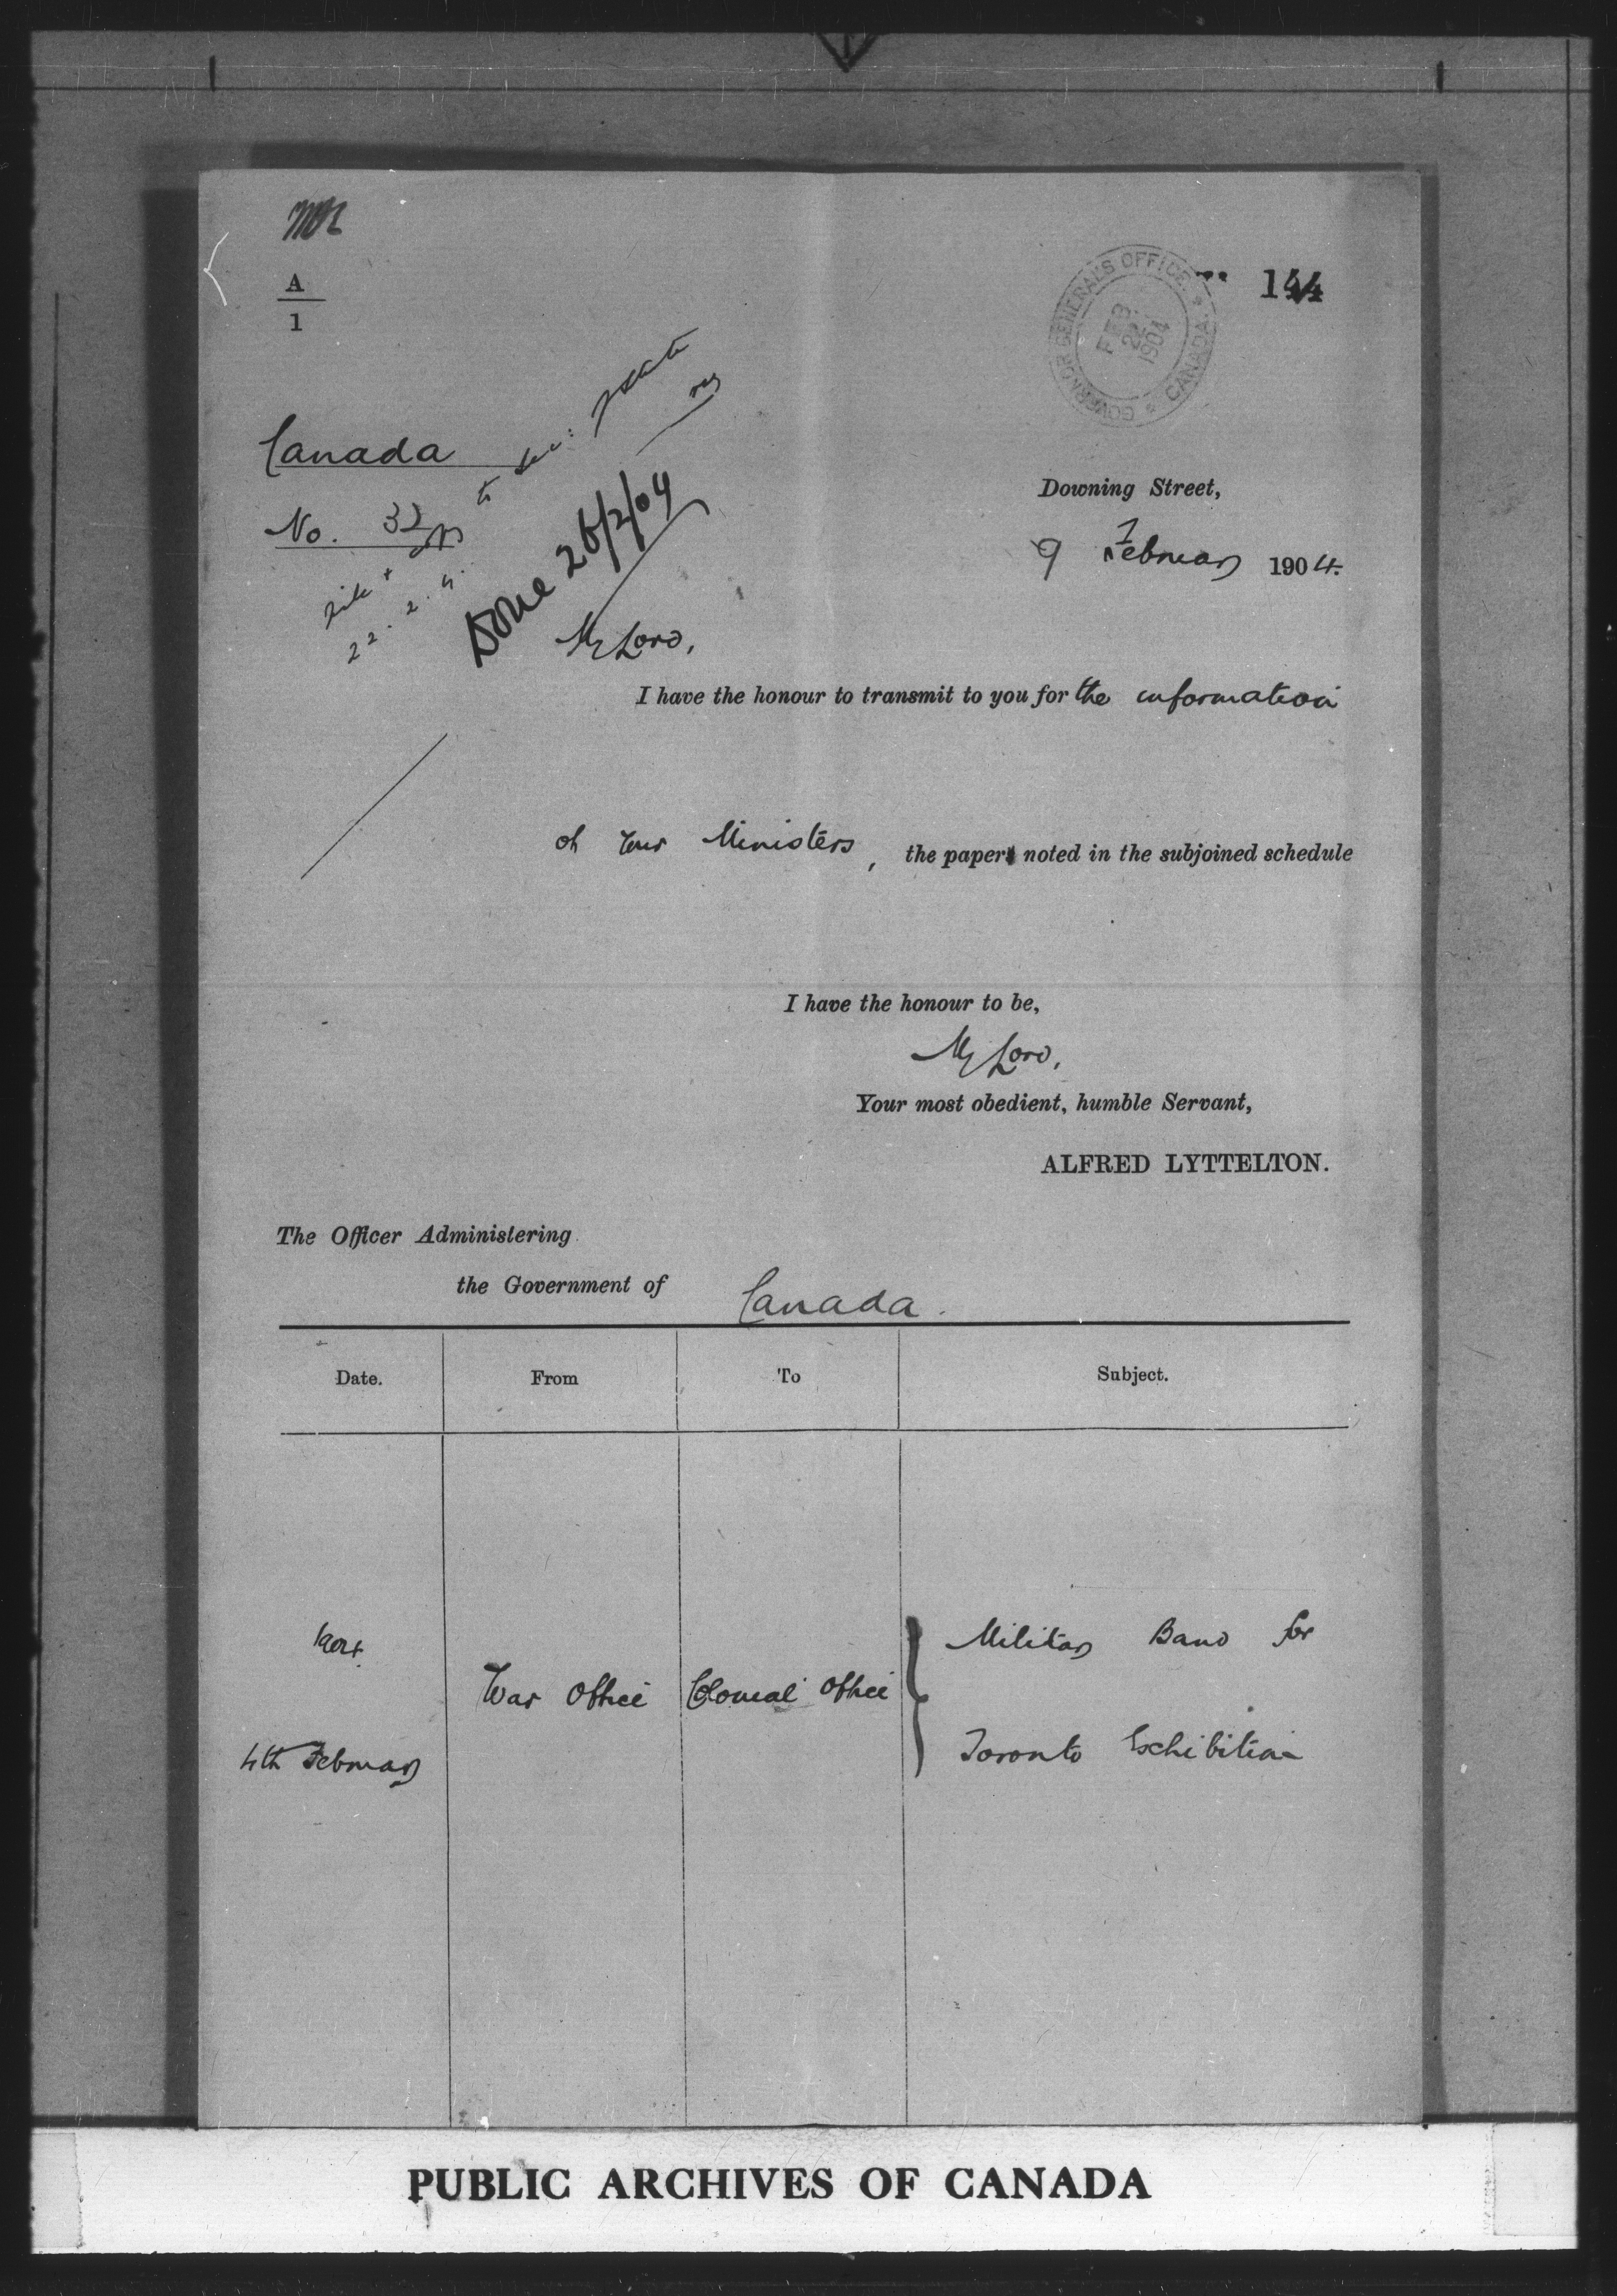 A
1
144
GOVERNOR GENERAL'S OFFICE
CANADA
FEB
22
1904
Canada
No. 32
to
State
Downing Street,
9 February 1904.
22.2.4.
Done 26/2/04
My Lord,
I have the honour to transmit to you for the information
of Your Ministers, the paper noted in the subjoined schedule
I have the honour to be,
My Lord,
Your most obedient, humble Servant,
ALFRED LYTTELTON.
The Officer Administering
the Government of Canada.
Date. From To Subject.
1904. Military Band for
War Office Colonial Office
4th February Toronto Exhibition
PUBLIC ARCHIVES OF CANADA